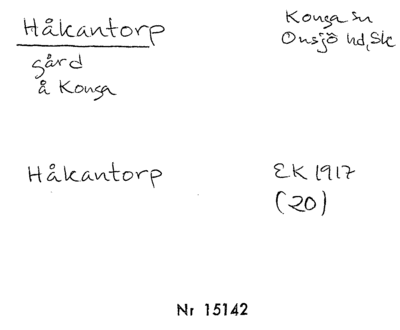 Håkantorp
Konga sn
Onsjö hd, Sk
gård
å Konga
Håkantorp
EK 1917
(20)
Nr 15142